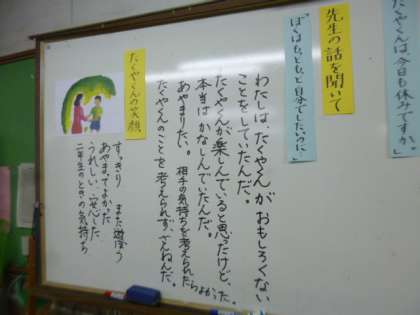 たくやくんは、今日も休みですか。」
先生の話を聞いて
「ぼくはもっともっと自分でしたいのに」
わたしは、たくやくんが おもしろくない
ことをしていたんだ。
たくやくんが楽しんでいると思ったけど、
本当は かなしんでいたんだ。
あやまりたい。 相手の気持ちを考えられたらよかった。
たくやくんのことを 考えられず、ざんねんだ。
たくやくんの笑顔
すっきり また遊ぼう
あやまってよかった
うれしい、安心した
二年生のときの気持ち